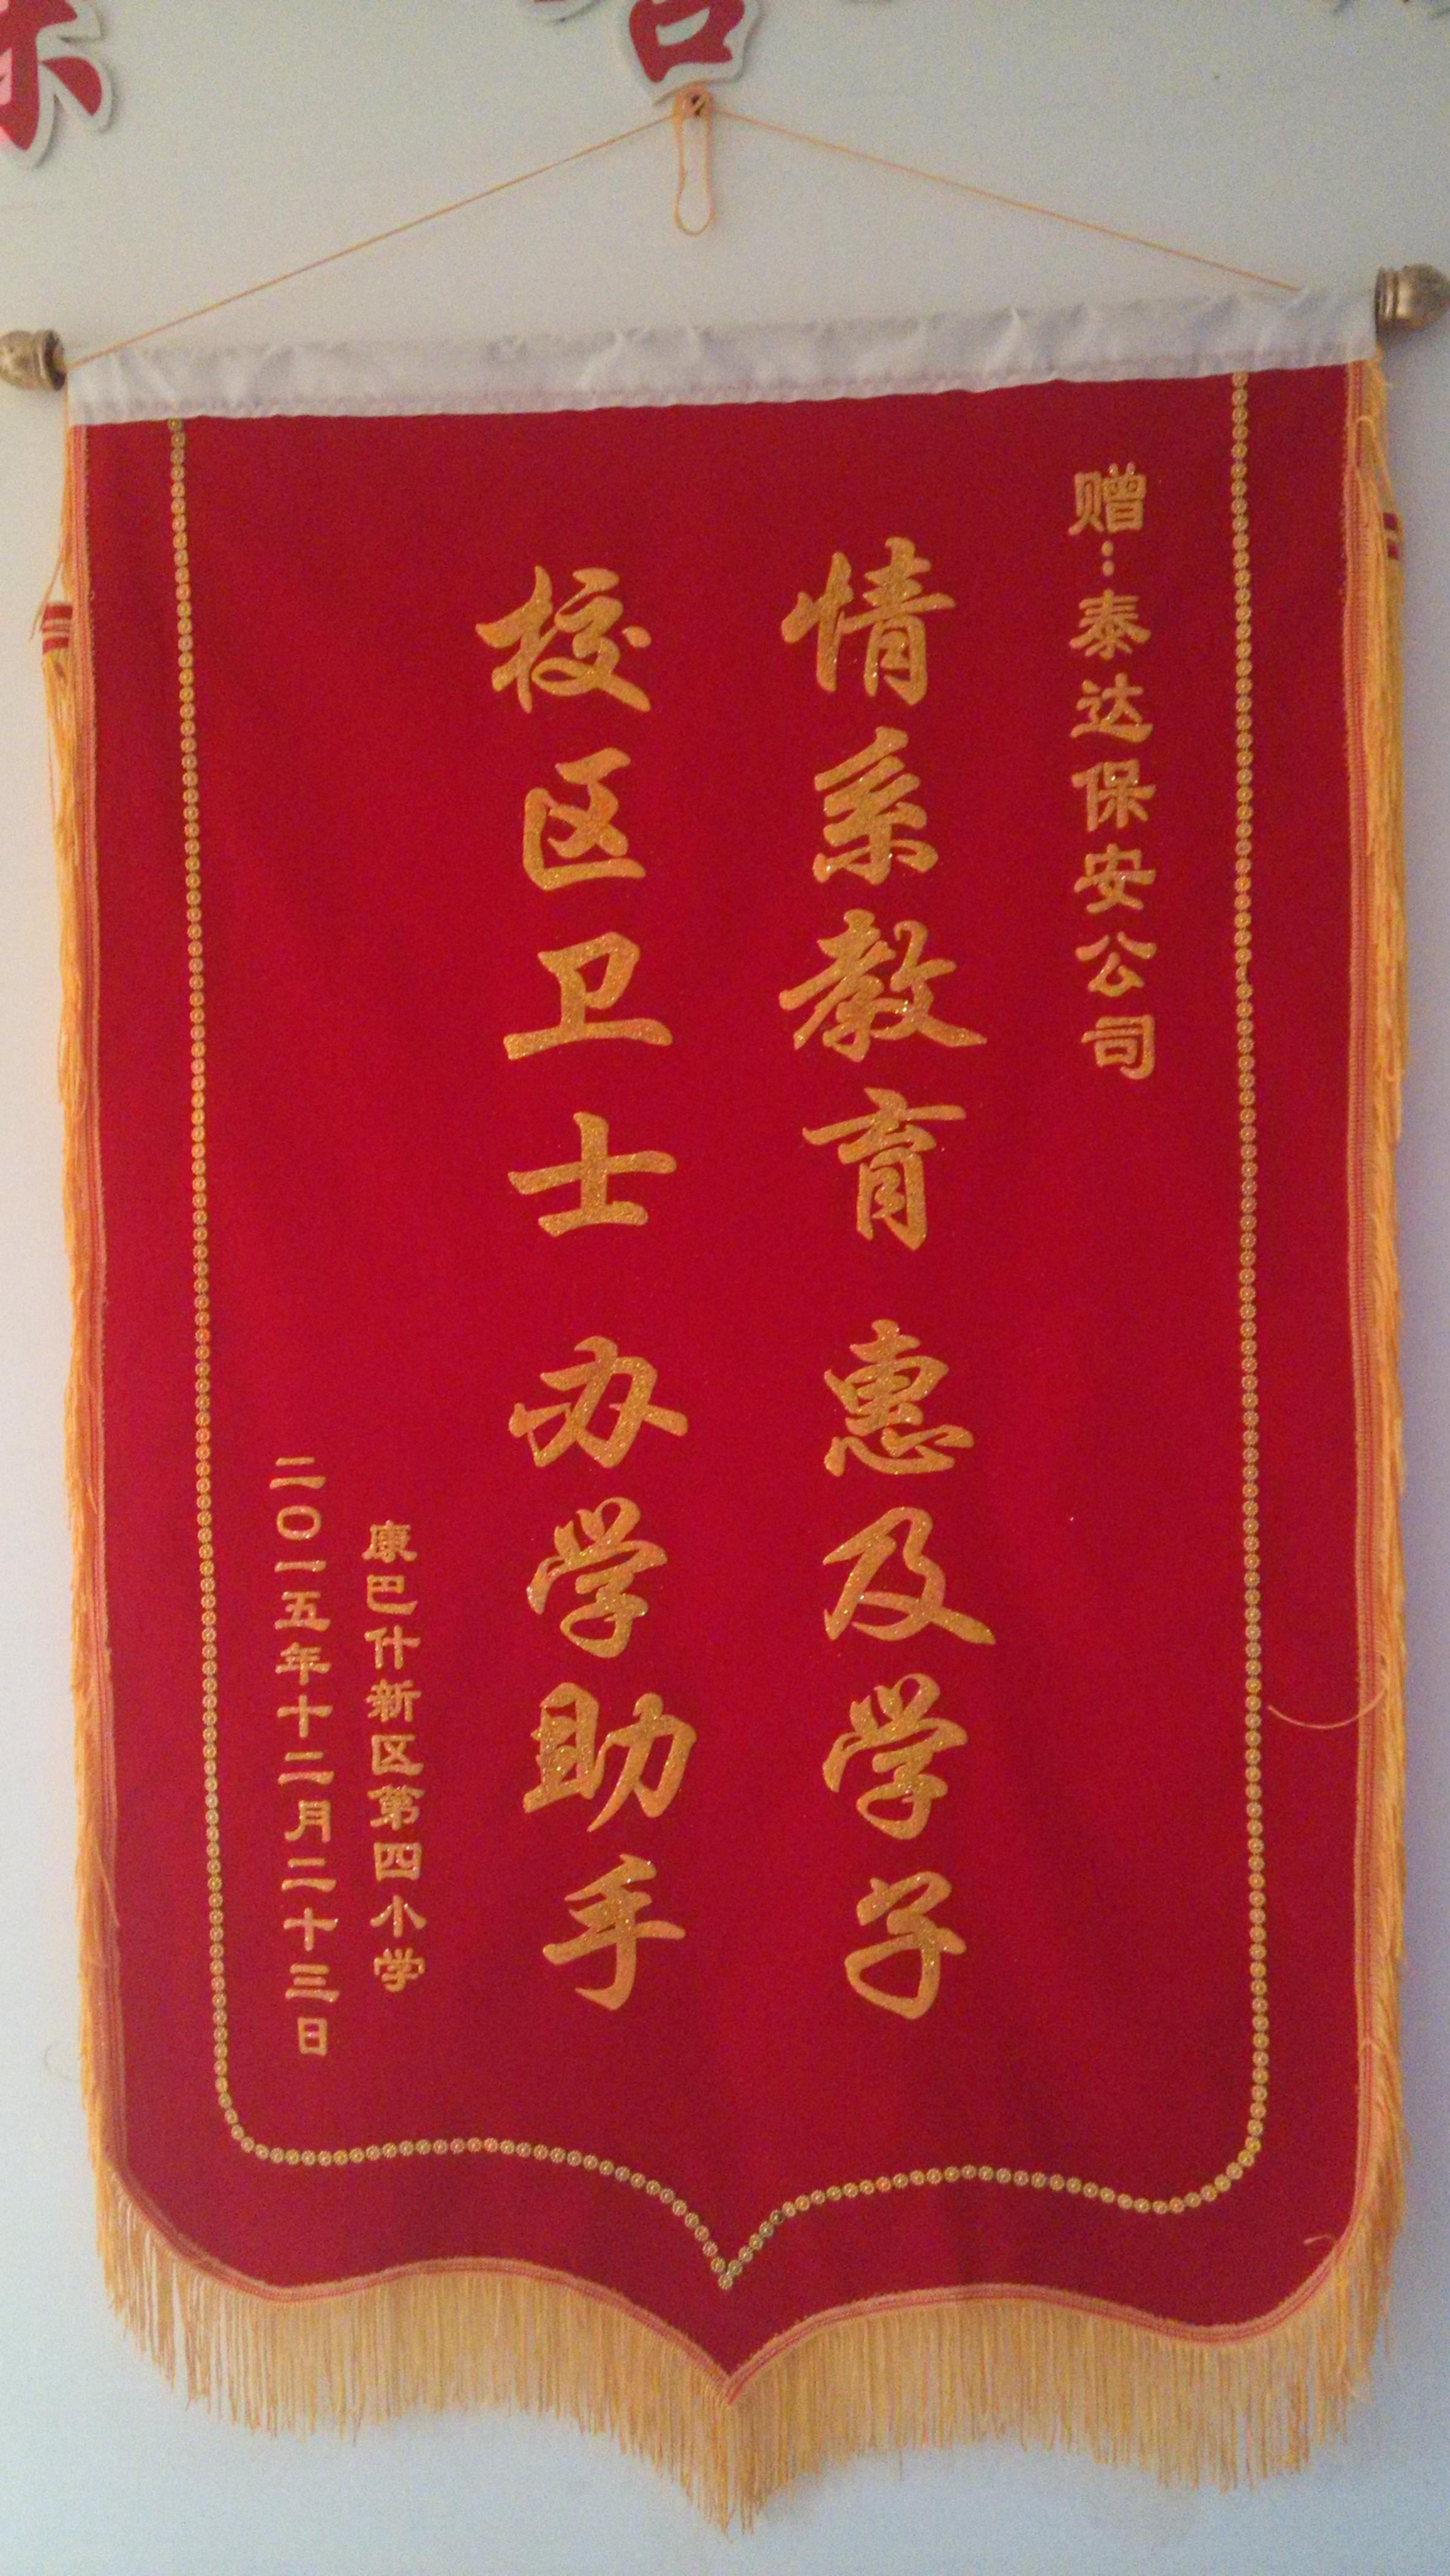 赠：泰达保安公司
情系教育 惠及学子
校区卫士 办学助手
康巴什新区第四小学
二〇一五年十二月二十三日